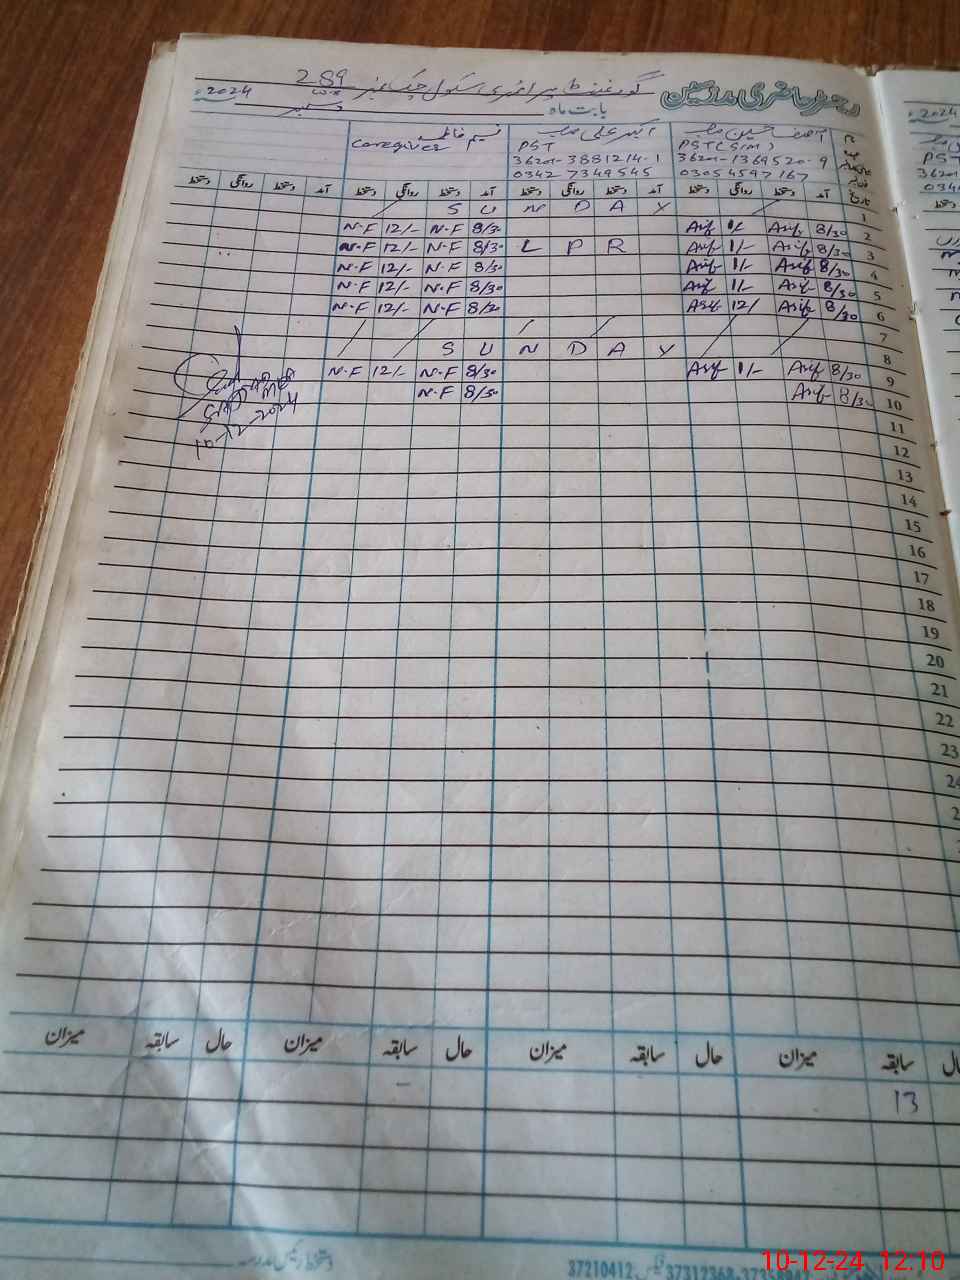 رجسٹر حاضری مدرسین
گورنمنٹ پرائمری سکول چک نمبر 289
بابت ماہ دسمبر 2024
آصف حسین صاحب
PST (SIM)
36201-1369520-9
0305 4597167
اکبر علی صاحب
PST
36201-3881214-1
0342 7349545
نسیم فاطمہ
Caregiver
آمد دستخط روانگی دستخط آمد دستخط روانگی دستخط آمد دستخط روانگی دستخط آمد دستخط روانگی دستخط
1 S U N D A Y
2 8/30 Asif 1/- Asif 8/30 N.F 12/- N.F
3 8/30 Asif 1/- Asif L P R 8/30 N.F 12/- N.F
4 8/30 Asif 1/- Asif 8/30 N.F 12/- N.F
5 8/30 Asif 1/- Asif 8/30 N.F 12/- N.F
6 8/30 Asif 12/ Asif 8/30 N.F 12/- N.F
7
8 S U N D A Y
9 8/30 Asif 1/- Asif 8/30 N.F 12/- N.F
10 8/30 Asif 8/30 N.F
10-12-2024
11
12
13
14
15
16
17
18
19
20
21
22
23
24
سابقہ میزان حال سابقہ میزان حال سابقہ میزان حال سابقہ میزان
13
37210412
37312368
10-12-24 12.10